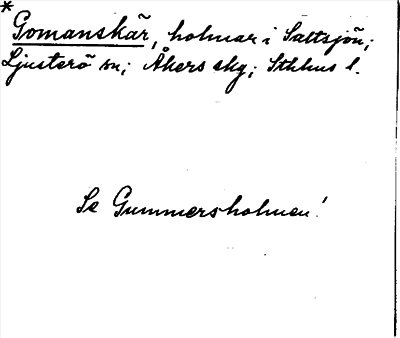 *
Gomanskär, holmar i Saltsjön;
Ljusterö sn; Åkers skg; Sthlms l.
Se Gummersholmen!